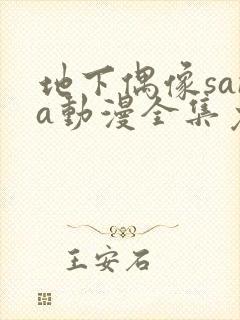 地下偶像sa
a动漫全集
王安石